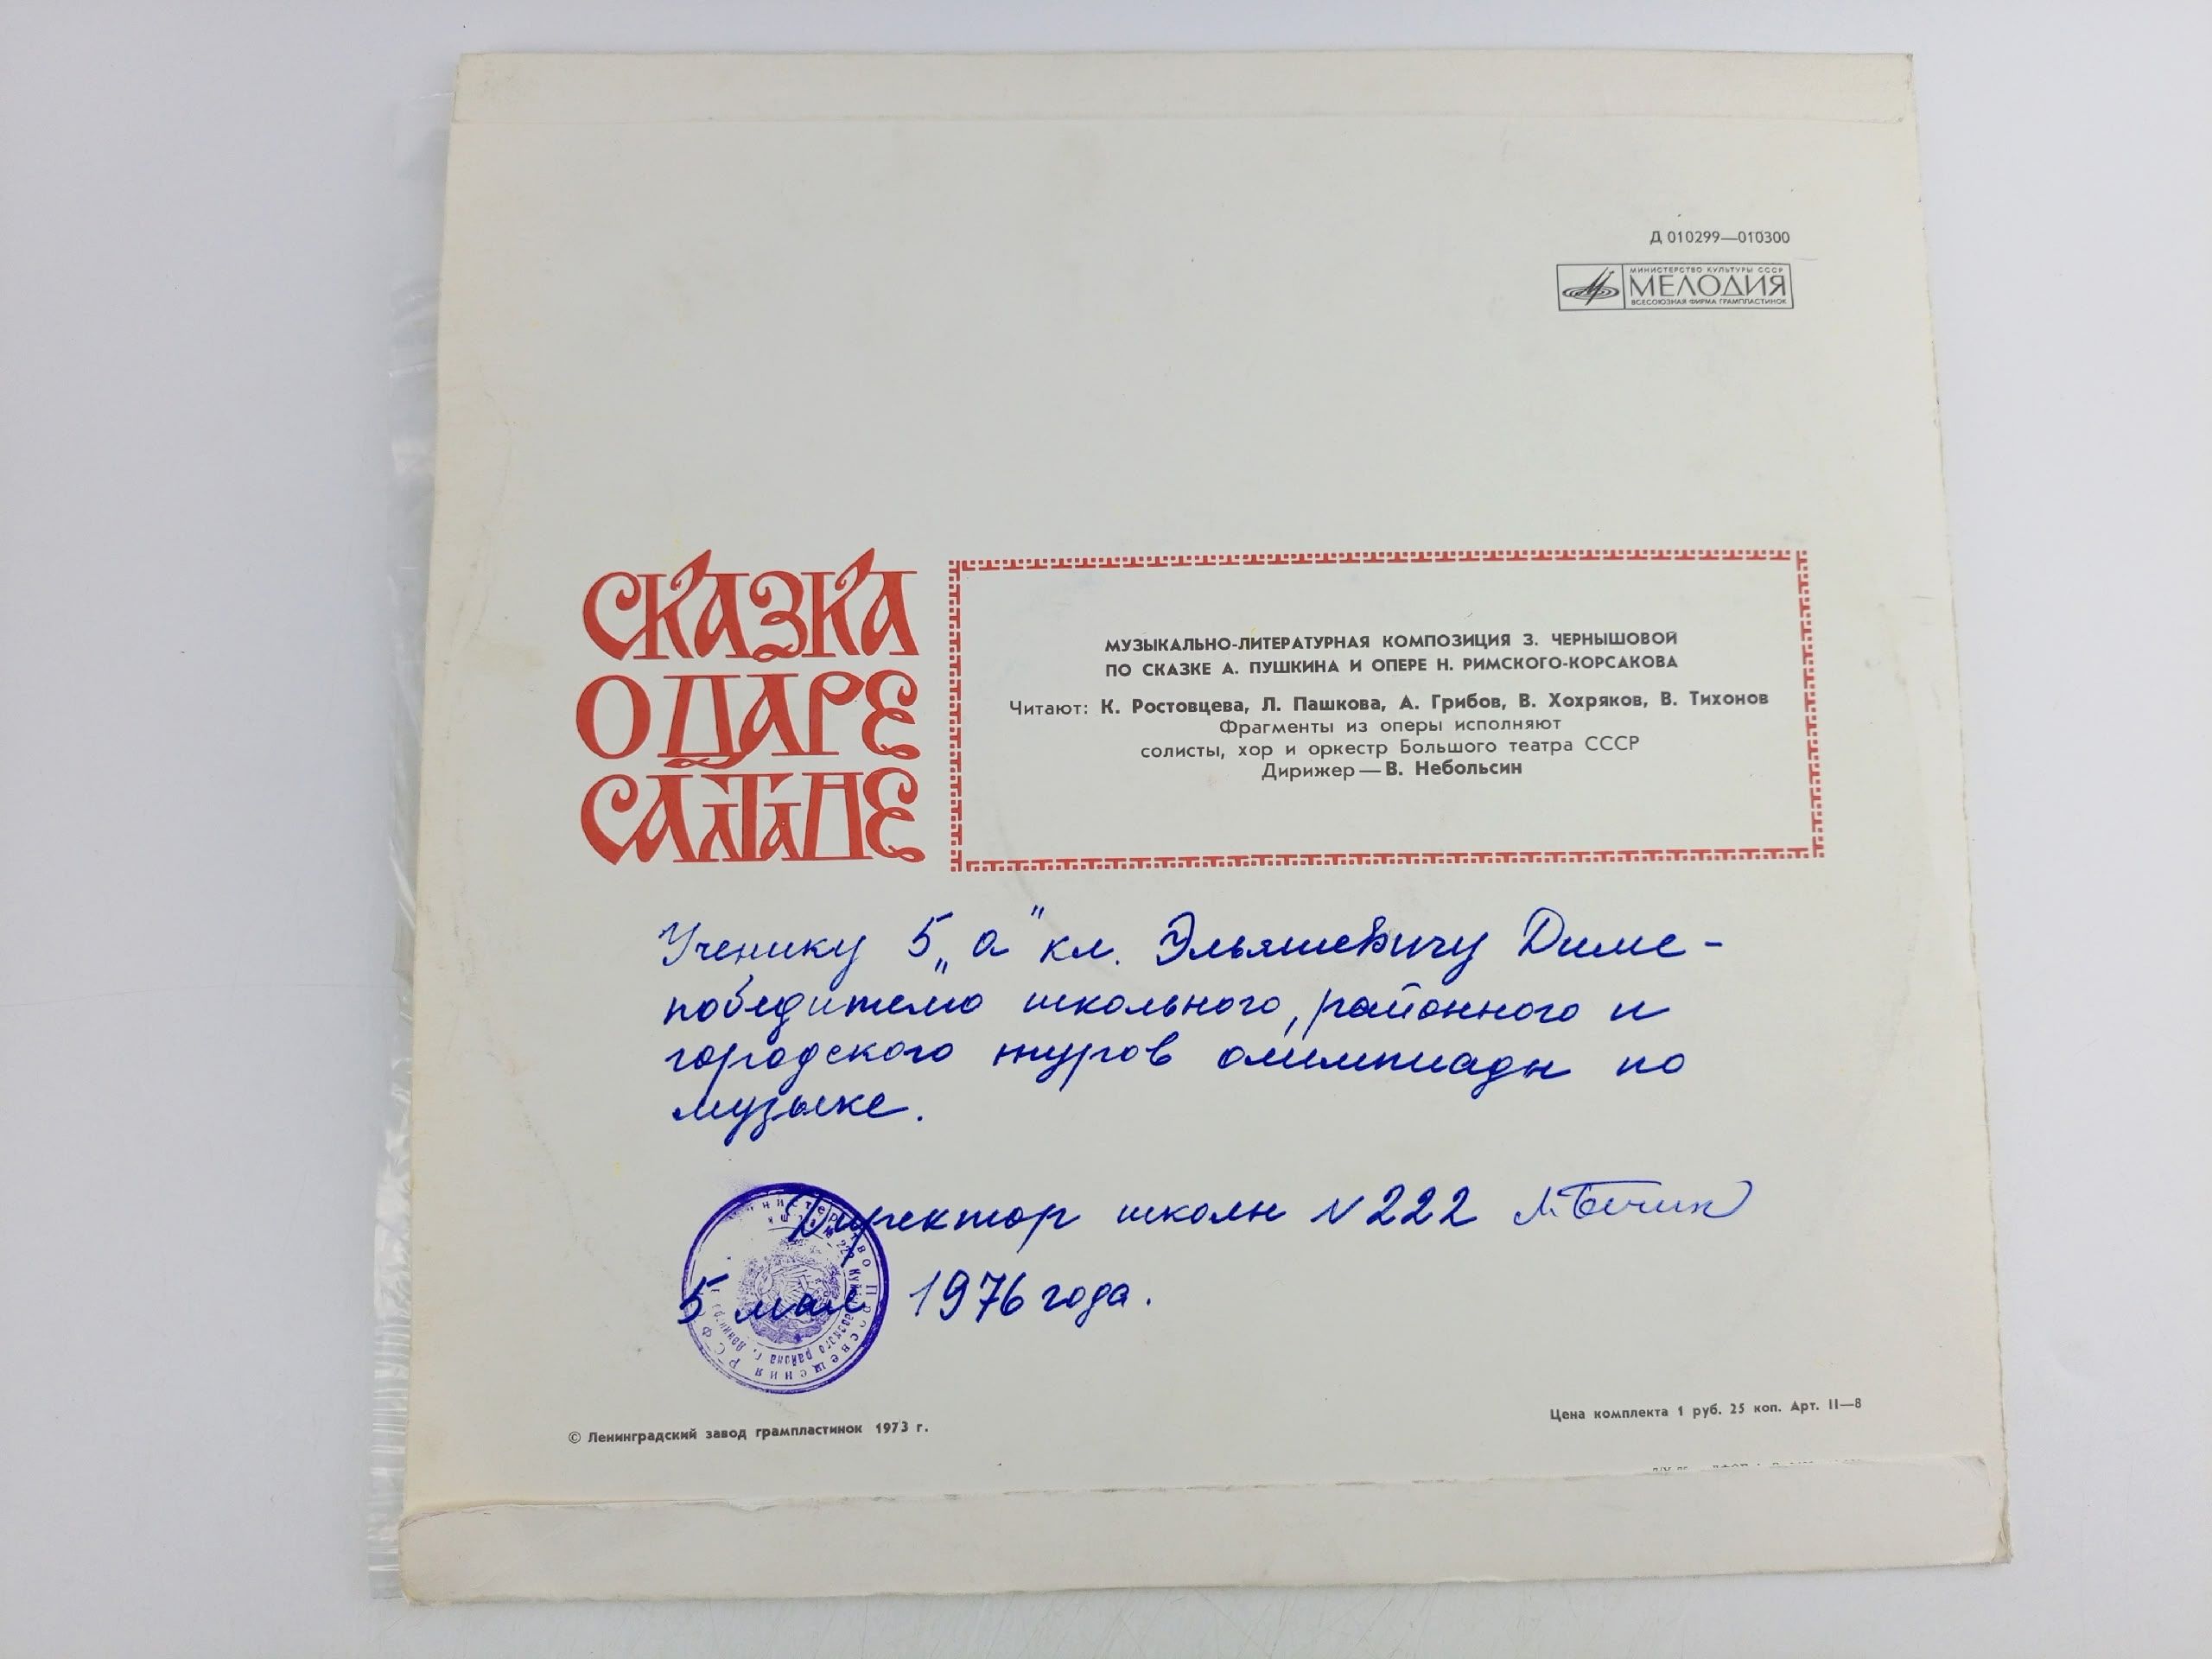 Д 010299—010300
МИНИСТЕРСТВО КУЛЬТУРЫ СССР
МЕЛОДИЯ
ВСЕСОЮЗНАЯ ФИРМА ГРАМПЛАСТИНОК
СКАЗКА
О ЦАРЕ
САЛТАНЕ
МУЗЫКАЛЬНО-ЛИТЕРАТУРНАЯ КОМПОЗИЦИЯ З. ЧЕРНЫШОВОЙ
ПО СКАЗКЕ А. ПУШКИНА И ОПЕРЕ Н. РИМСКОГО-КОРСАКОВА
Читают: К. Ростовцева, Л. Пашкова, А. Грибов, В. Хохряков, В. Тихонов
Фрагменты из оперы исполняют
солисты, хор и оркестр Большого театра СССР
Дирижер — В. Небольсин
Ученику 5 „а" кл. Эльяшевичу Диме -
победителю школьного, районного и
городского туров олимпиады по
музыке.
Директор школы N 222
5 мая 1976 года.
министерство просвещения РСФСР
района г. Ленинграда
© Ленинградский завод грампластинок 1973 г.
Цена комплекта 1 руб. 25 коп. Арт. II—8